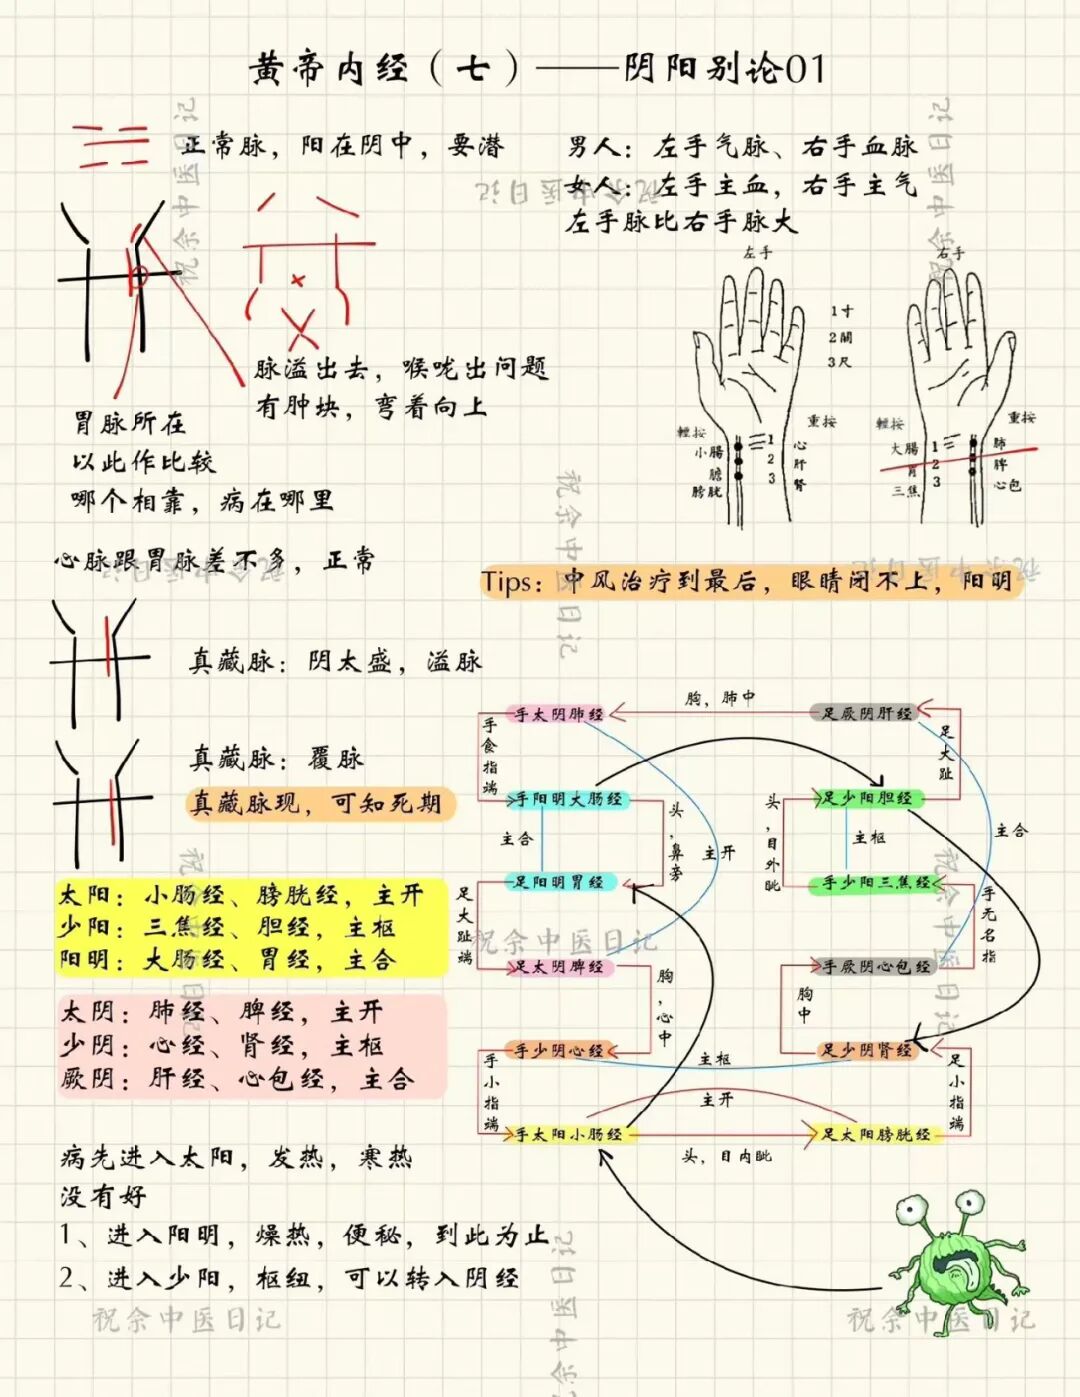 黄帝内经（七）——阴阳别论01
正常脉，阳在阴中，要潜
男人：左手气脉、右手血脉
女人：左手主血，右手主气
左手脉比右手脉大
左手
右手
1寸
2關
3尺
脉溢出去，喉咙出问题
有肿块，弯着向上
胃脉所在
以此作比较
哪个相靠，病在哪里
輕按
重按
小腸 1 心
膽 2 肝
膀胱 3 腎
輕按
重按
大腸 1 肺
胃 2 脾
三焦 3 心包
心脉跟胃脉差不多，正常
Tips：中风治疗到最后，眼睛闭不上，阳明
真藏脉：阴太盛，溢脉
真藏脉：覆脉
真藏脉现，可知死期
太阳：小肠经、膀胱经，主开
少阳：三焦经、胆经，主枢
阳明：大肠经、胃经，主合
太阴：肺经、脾经，主开
少阴：心经、肾经，主枢
厥阴：肝经、心包经，主合
手太阴肺经
胸，肺中
足厥阴肝经
手食指端
足大趾
手阳明大肠经
头，鼻旁
头，目外眦
足少阳胆经
主合
主开
主枢
主合
足阳明胃经
手少阳三焦经
足大趾端
手无名指
足太阴脾经
胸，心中
胸中
手厥阴心包经
手少阴心经
主枢
足少阴肾经
手小指端
主开
足小指端
手太阳小肠经
头，目内眦
足太阳膀胱经
病先进入太阳，发热，寒热
没有好
1、进入阳明，燥热，便秘，到此为止
2、进入少阳，枢纽，可以转入阴经
祝余中医日记
祝余中医日记
祝余中医日记
祝余中医日记
祝余中医日记
祝余中医日记
祝余中医日记
祝余中医日记
祝余中医日记
祝余中医日记
祝余中医日记
祝余中医日记
祝余中医日记